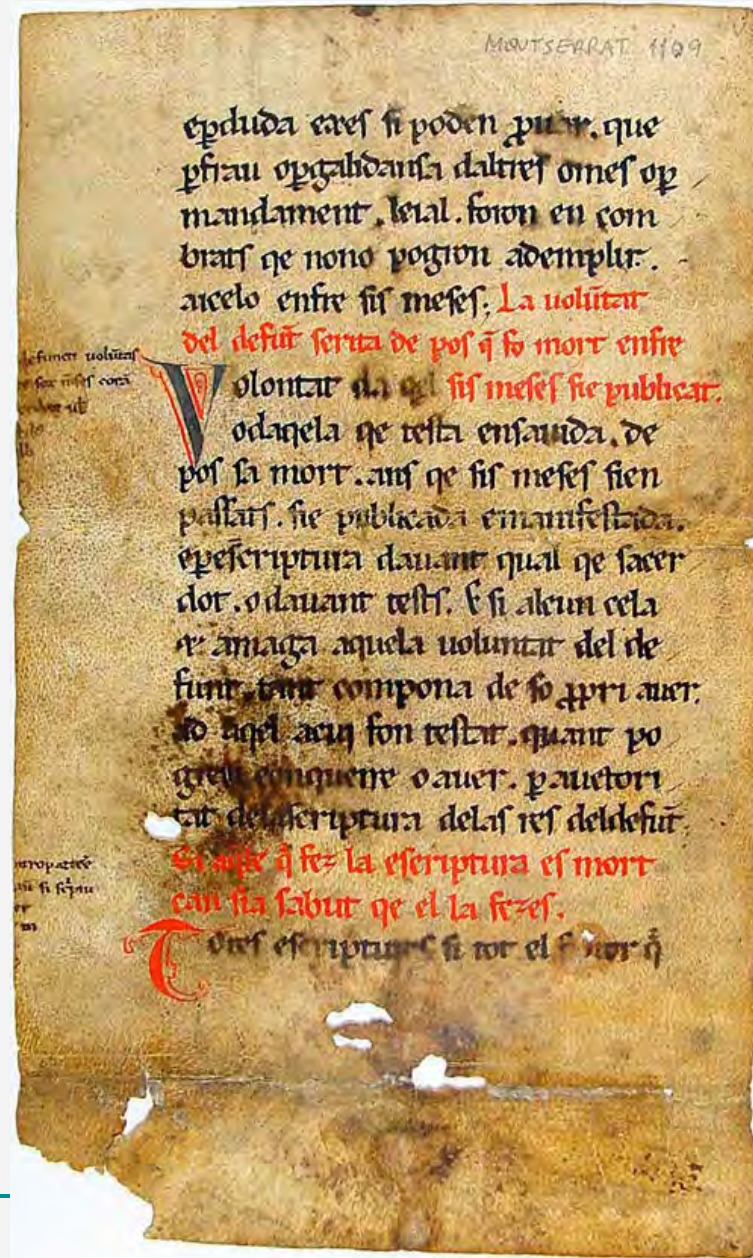 MONTSERRAT 1109
eꝑduda eres si poden ꝓuar. que
ꝑfrau oꝑgalidansa daltres omes oꝑ
mandament. leial. foron en com
brats qe nono pogron ademplir.
aicelo enfre sis meses; La uolũtat
del defũt scrita de pos q̃ fo mort enfre
Volontat sis meses sie publicat.
odaqela qe testa ensauida. de
pos sa mort. ans qe sis meses sien
passats. sie publicada emanifestada.
eꝑescriptura dauant qual qe sacer
dot. odauant tests. E si alcun cela
amaga aquela uoluntat del de
funt. tant compona de so ꝓpri auer.
ad aqel acui fon testat. quant po
gren conquerre oauer. ꝑ auctori
tat delascriptura delas res deldefũt.
Si aqle q̃ fez la escriptura es mort
can sia sabut qe el la fezes.
Totes escriptures si tot el q̃
defuncti uolũtas